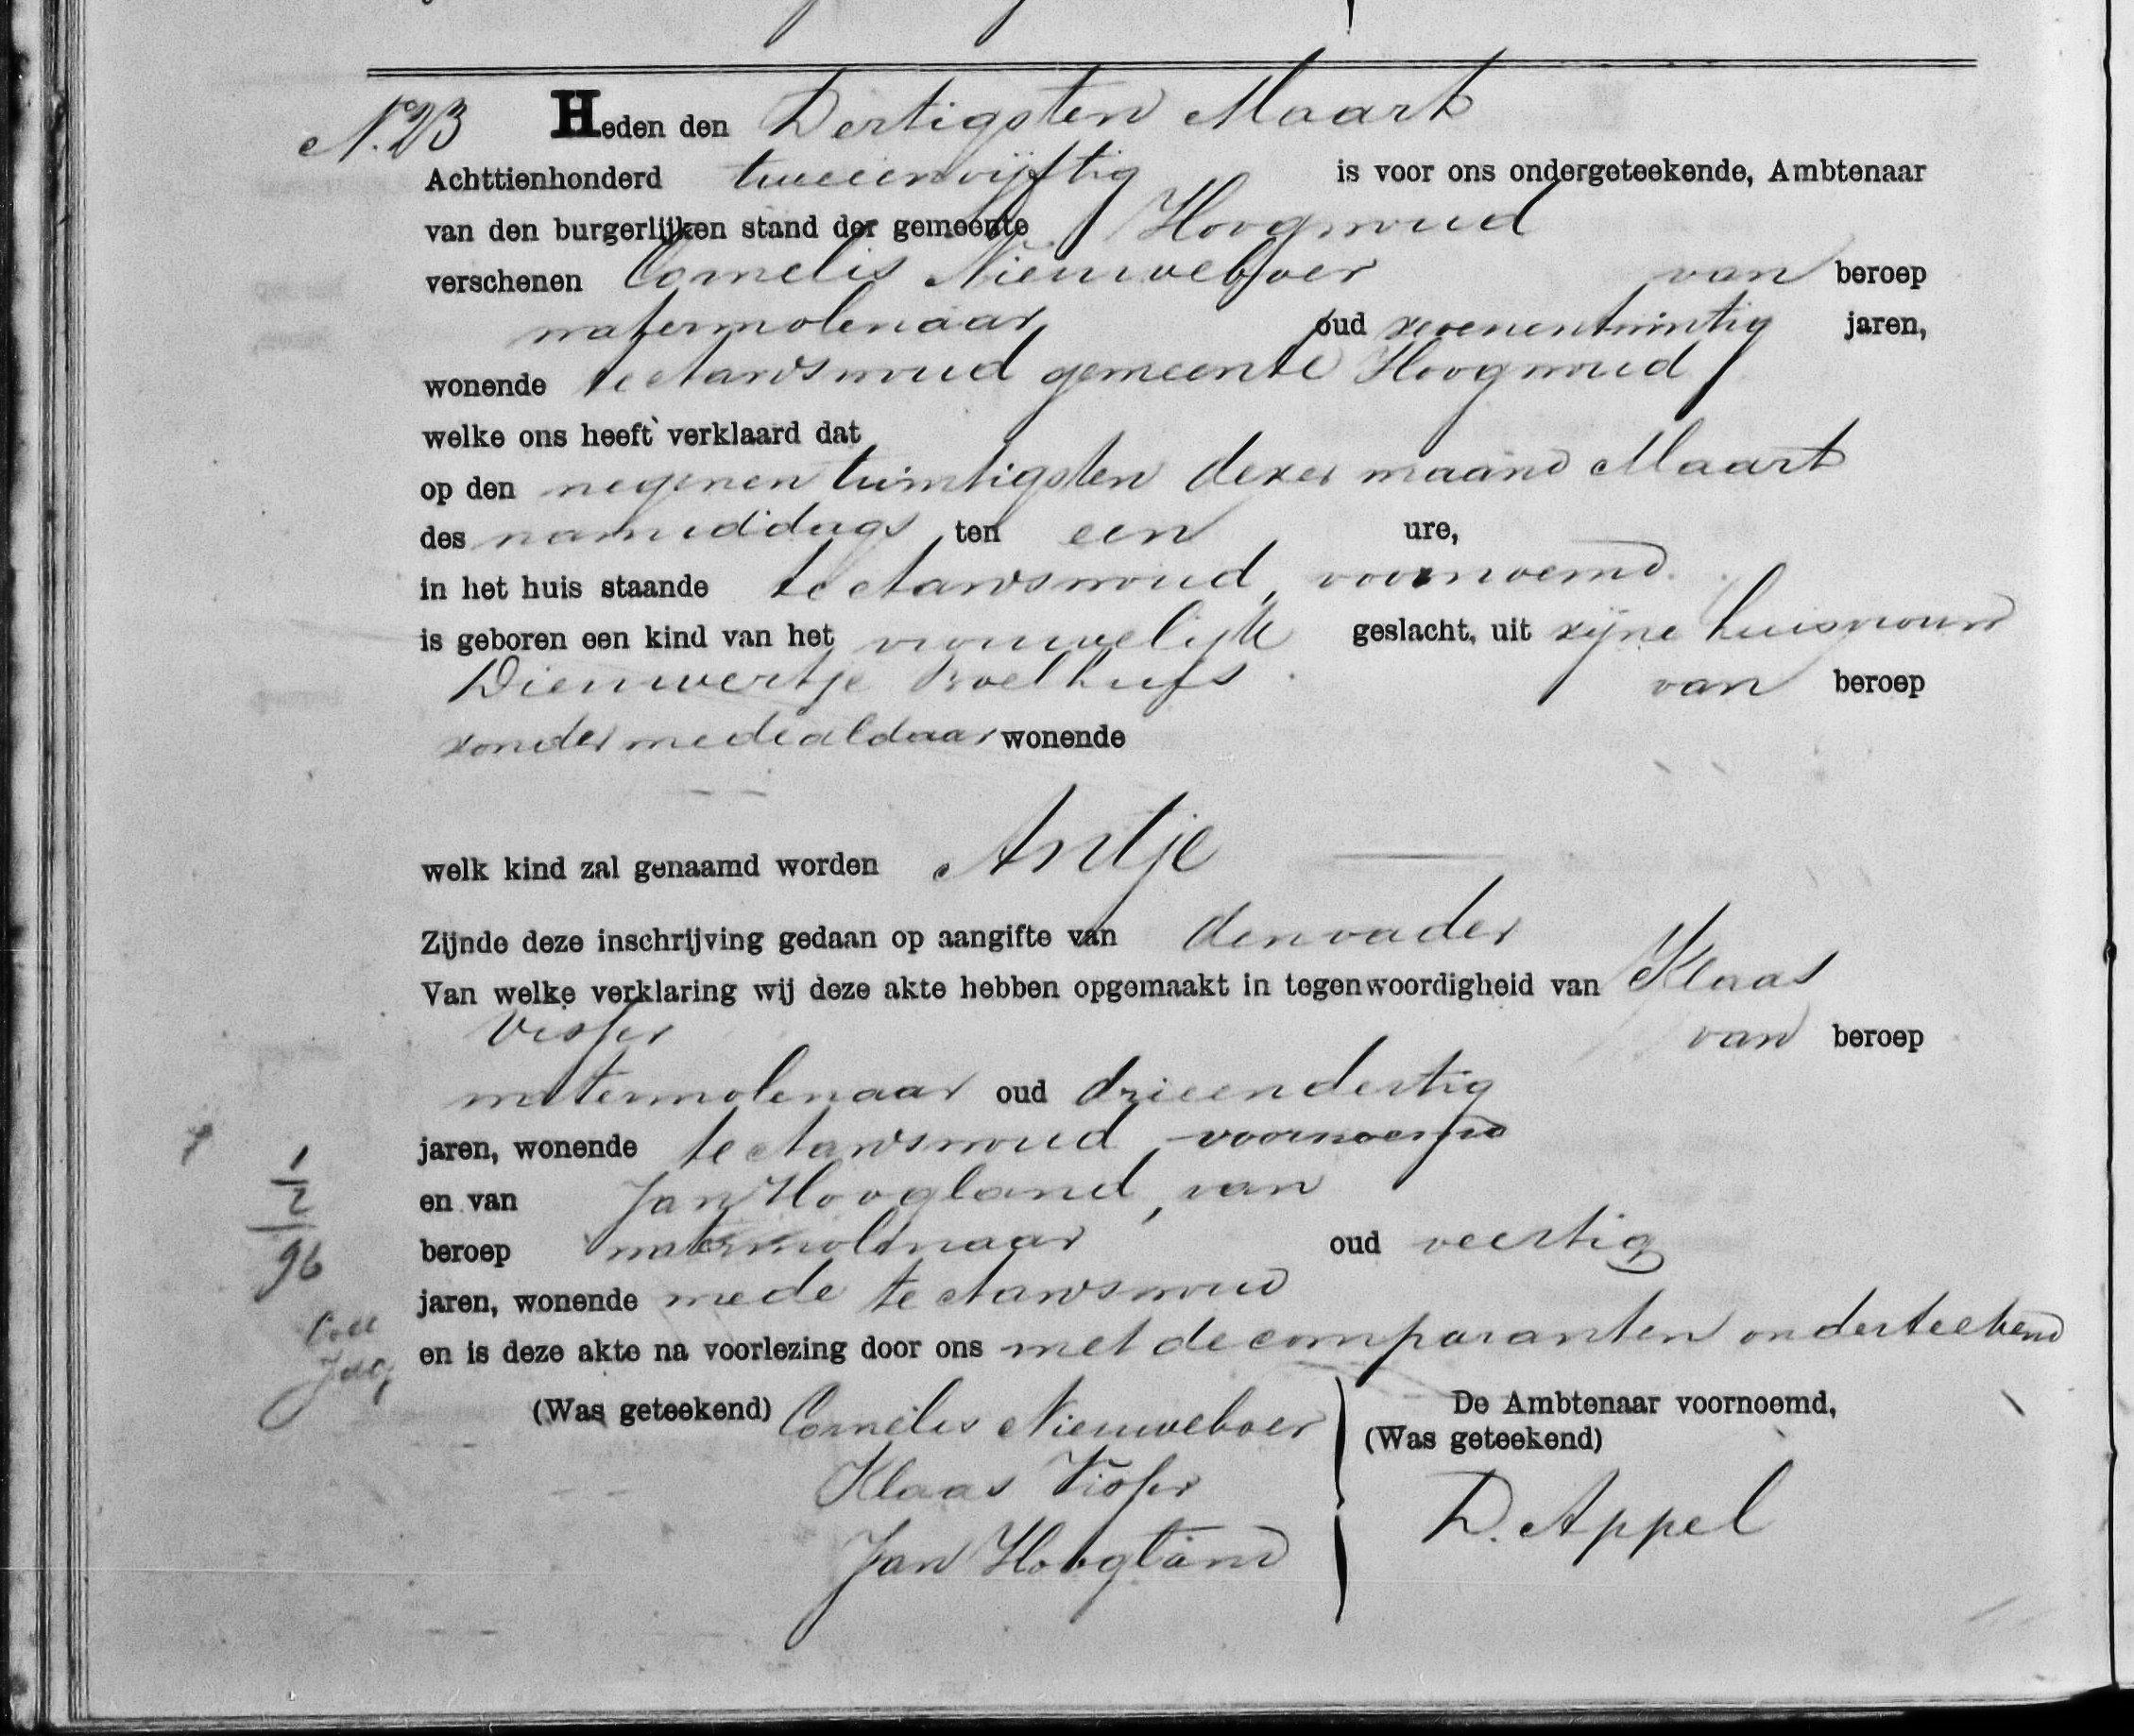 No. 23 Heden den Dertigsten Maart
Achttienhonderd tweeenvijftig is voor ons ondergeteekende, Ambtenaar
van den burgerlijken stand der gemeente Hoogwoud
verschenen Cornelis Nieuweboer van beroep
watermolenaar oud zevenentwintig jaren,
wonende te Aartswoud gemeente Hoogwoud
welke ons heeft verklaard dat
op den negenentwintigsten dezer maand Maart
des namiddags ten een ure,
in het huis staande te Aartswoud, voornoemd.
is geboren een kind van het vrouwelijk geslacht, uit zijne huisvrouw
Dieuwertje Roelhufs van beroep
zonder mede aldaar wonende
welk kind zal genaamd worden Antje
Zijnde deze inschrijving gedaan op aangifte van den vader
Van welke verklaring wij deze akte hebben opgemaakt in tegenwoordigheid van Klaas
Visser van beroep
watermolenaar oud drieendertig
jaren, wonende te Aartswoud, voornoemd
en van Jan Hoogland, van
beroep watermolenaar oud veertig
jaren, wonende mede te Aartswoud
en is deze akte na voorlezing door ons met de comparanten onderteekend
(Was geteekend) Cornelis Nieuweboer
Klaas Visser
Jan Hoogland
De Ambtenaar voornoemd,
(Was geteekend)
D. Appel
1
2
96
Coll